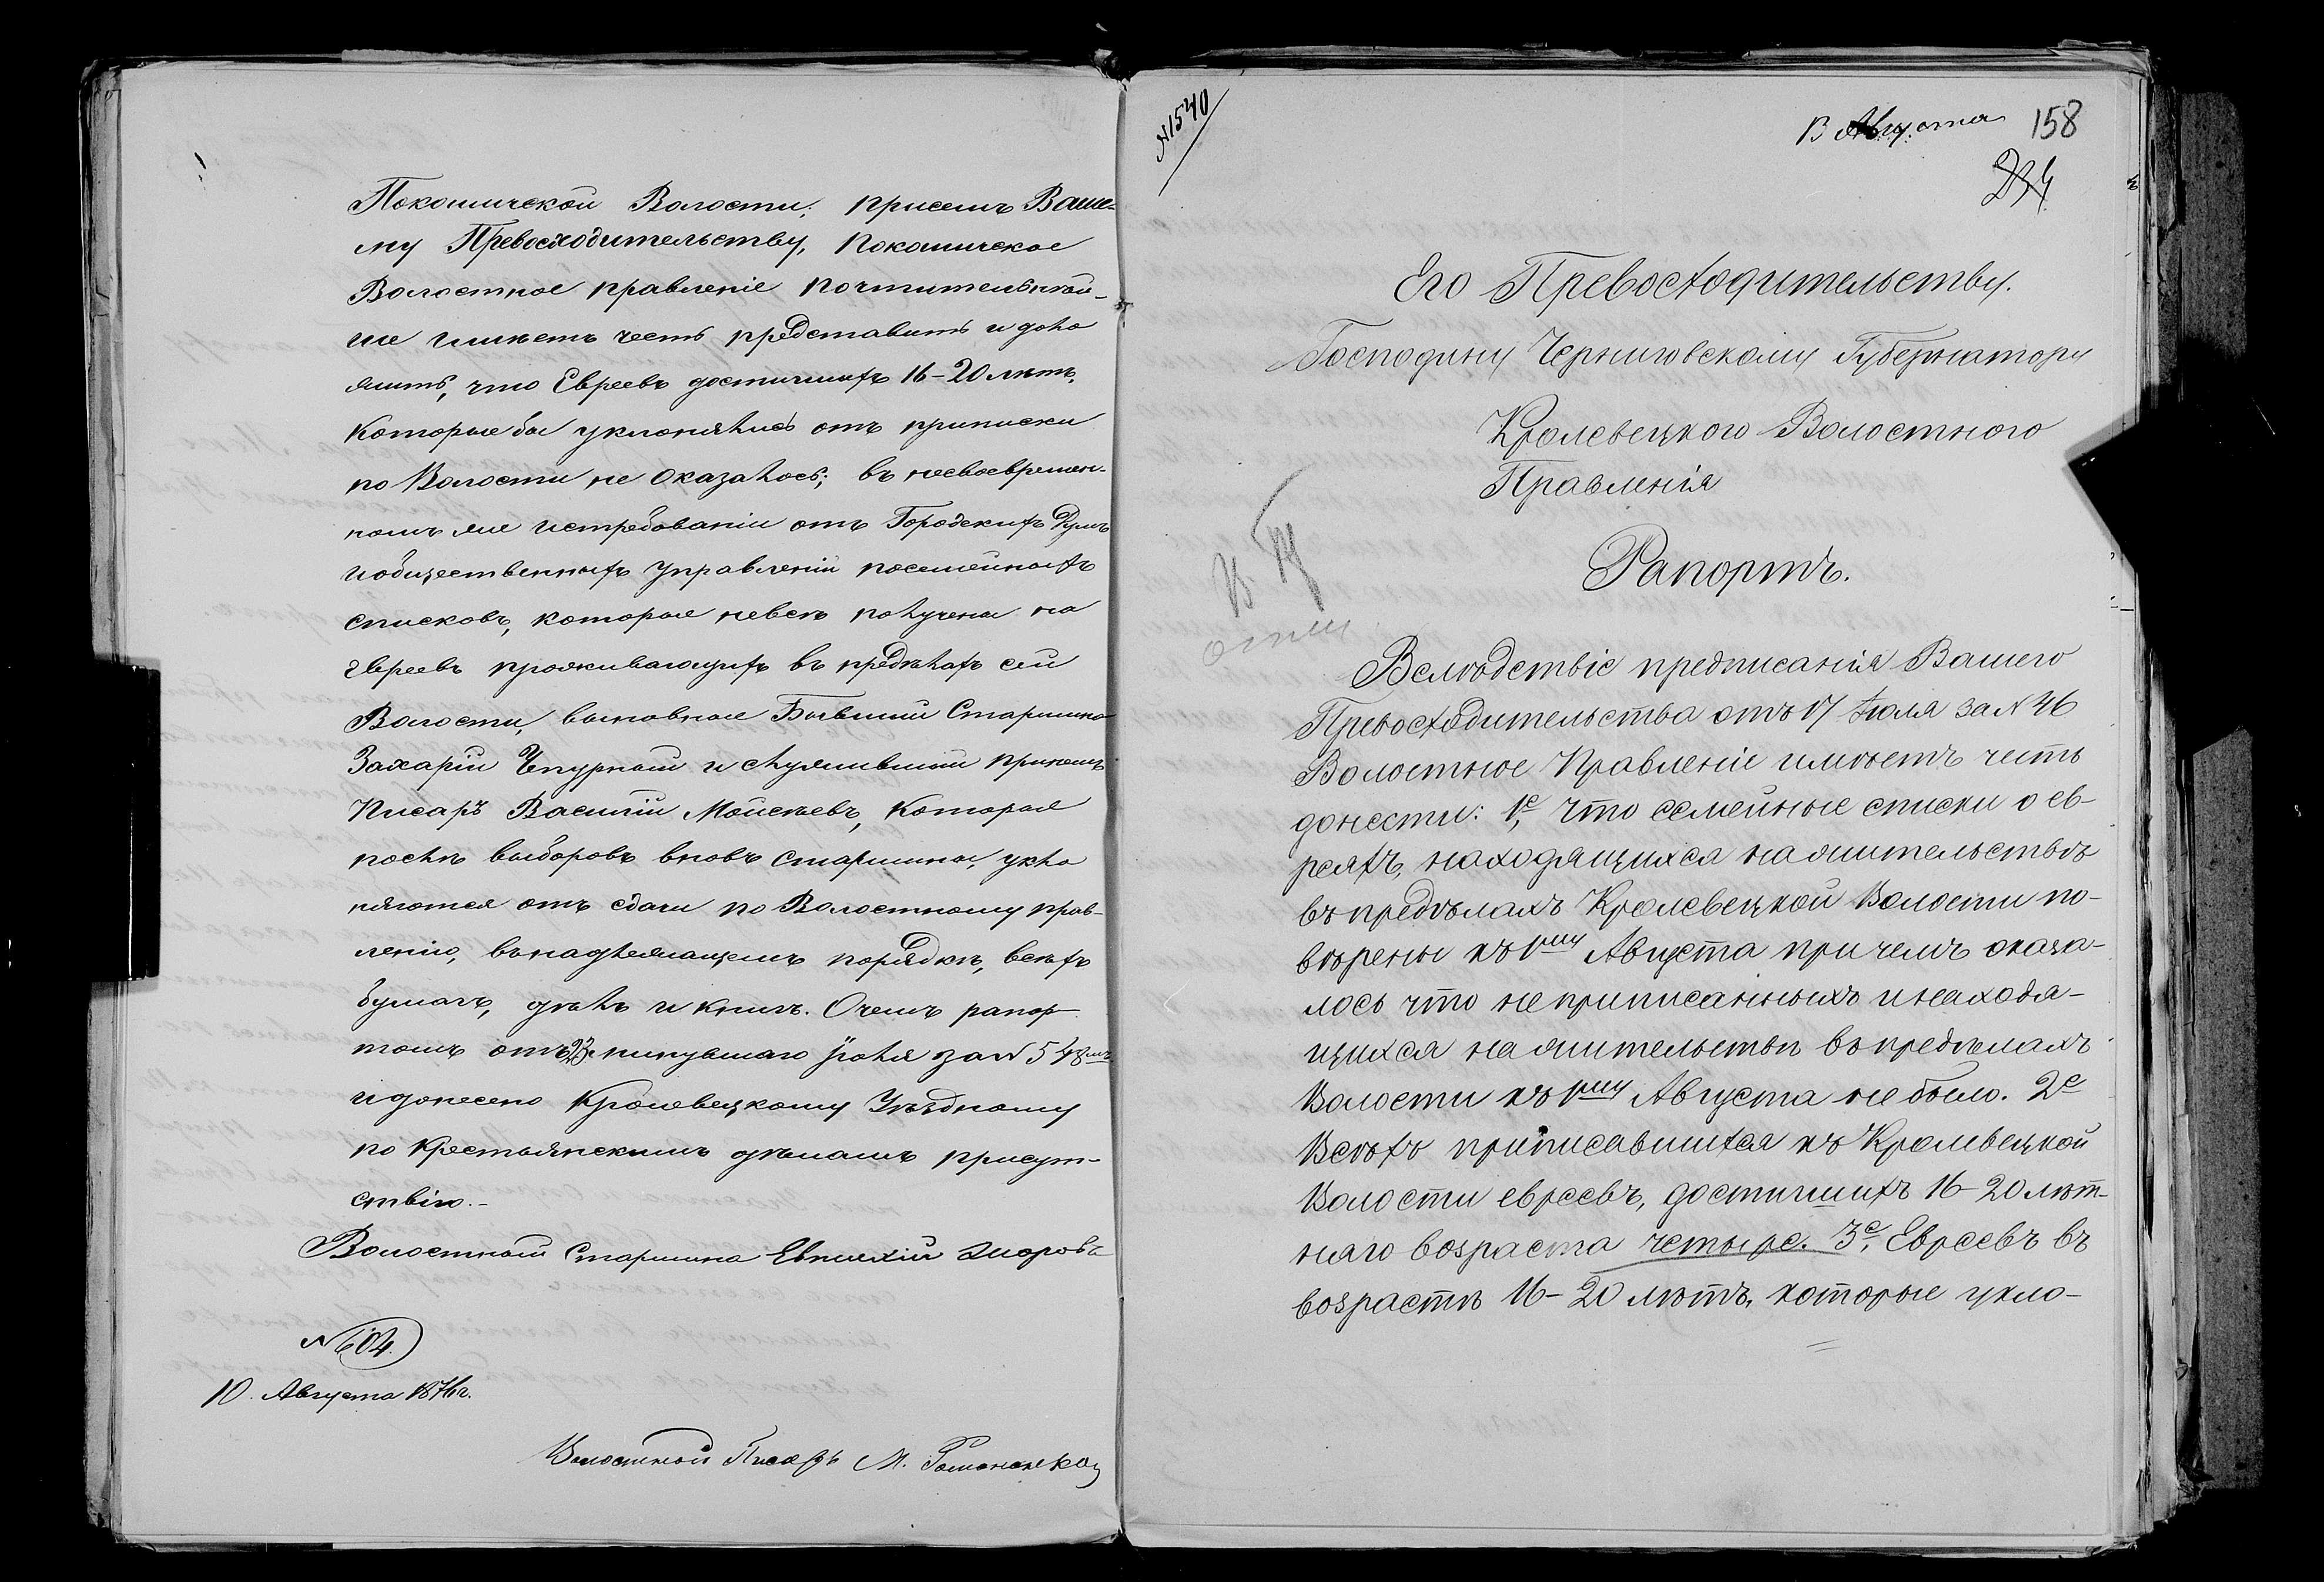 Покошической Волости; присемъ Ваше-
му Превосходительству, Покошичское
Волостное правленіе почтительнѣй-
ше имѣетъ честь представить и доло
жить, что Евреевъ достигшихъ 16-20 лѣтъ,
которые бы уклонялись отъ приписки
по Волости не оказалось; въ несвоевремен-
номъ же истребованіи отъ Городскихъ Думъ
и общественныхъ Управленій посемейныхъ
списковъ, которые невсѣ получены на
Евреевъ проживающихъ въ предѣлахъ сей
Волости, виновные Бывшій Старшина
Захарій Чепурный и служившій при немъ
Писарь Василій Моисѣевъ, которые
послѣ выборовъ вновь старшины, укло
няются отъ сдачи по Волостному прав-
ленію, въ надлежащемъ порядкѣ, всѣхъ
бумагъ, дѣлъ и книгъ. О чемъ рапор-
томъ отъ 23 минувшаго Іюля за N 548мъ
и донесено Кролевецкому Уѣздному
по Крестьянскимъ дѣламъ присут-
ствію.-
Волостный Старшина Евтихій
N 604.
10. Августа 1876 г.
Волостной Писарь М. Романенко
N 1540
13 Августа 158
234
Его Превосходительству.
Господину Черниговскому Губернатору
Кролевецкого Волостного
Правленія
Рапортъ.
Вслѣдствіе предписанія Вашего
Превосходительства отъ 17 Іюля за N 46
Волостное Правленіе имѣетъ честь
донести: 1е, что семейные списки о ев-
реяхъ, находящихся на жительствѣ
въ предѣлахъ Кролевецкой Волости по-
вѣрены къ 1му Августа при чемъ оказа-
лось что не приписанныхъ и находя-
щихся на жительствѣ въ предѣлахъ
Волости къ 1му Августа не было. 2е
Всѣхъ приписавшихся къ Кролевецкой
Волости евреевъ, достигшихъ 16-20 лѣт-
няго возраста четыре. 3е, Евреевъ въ
возрастѣ 16-20 лѣтъ, которые укло-